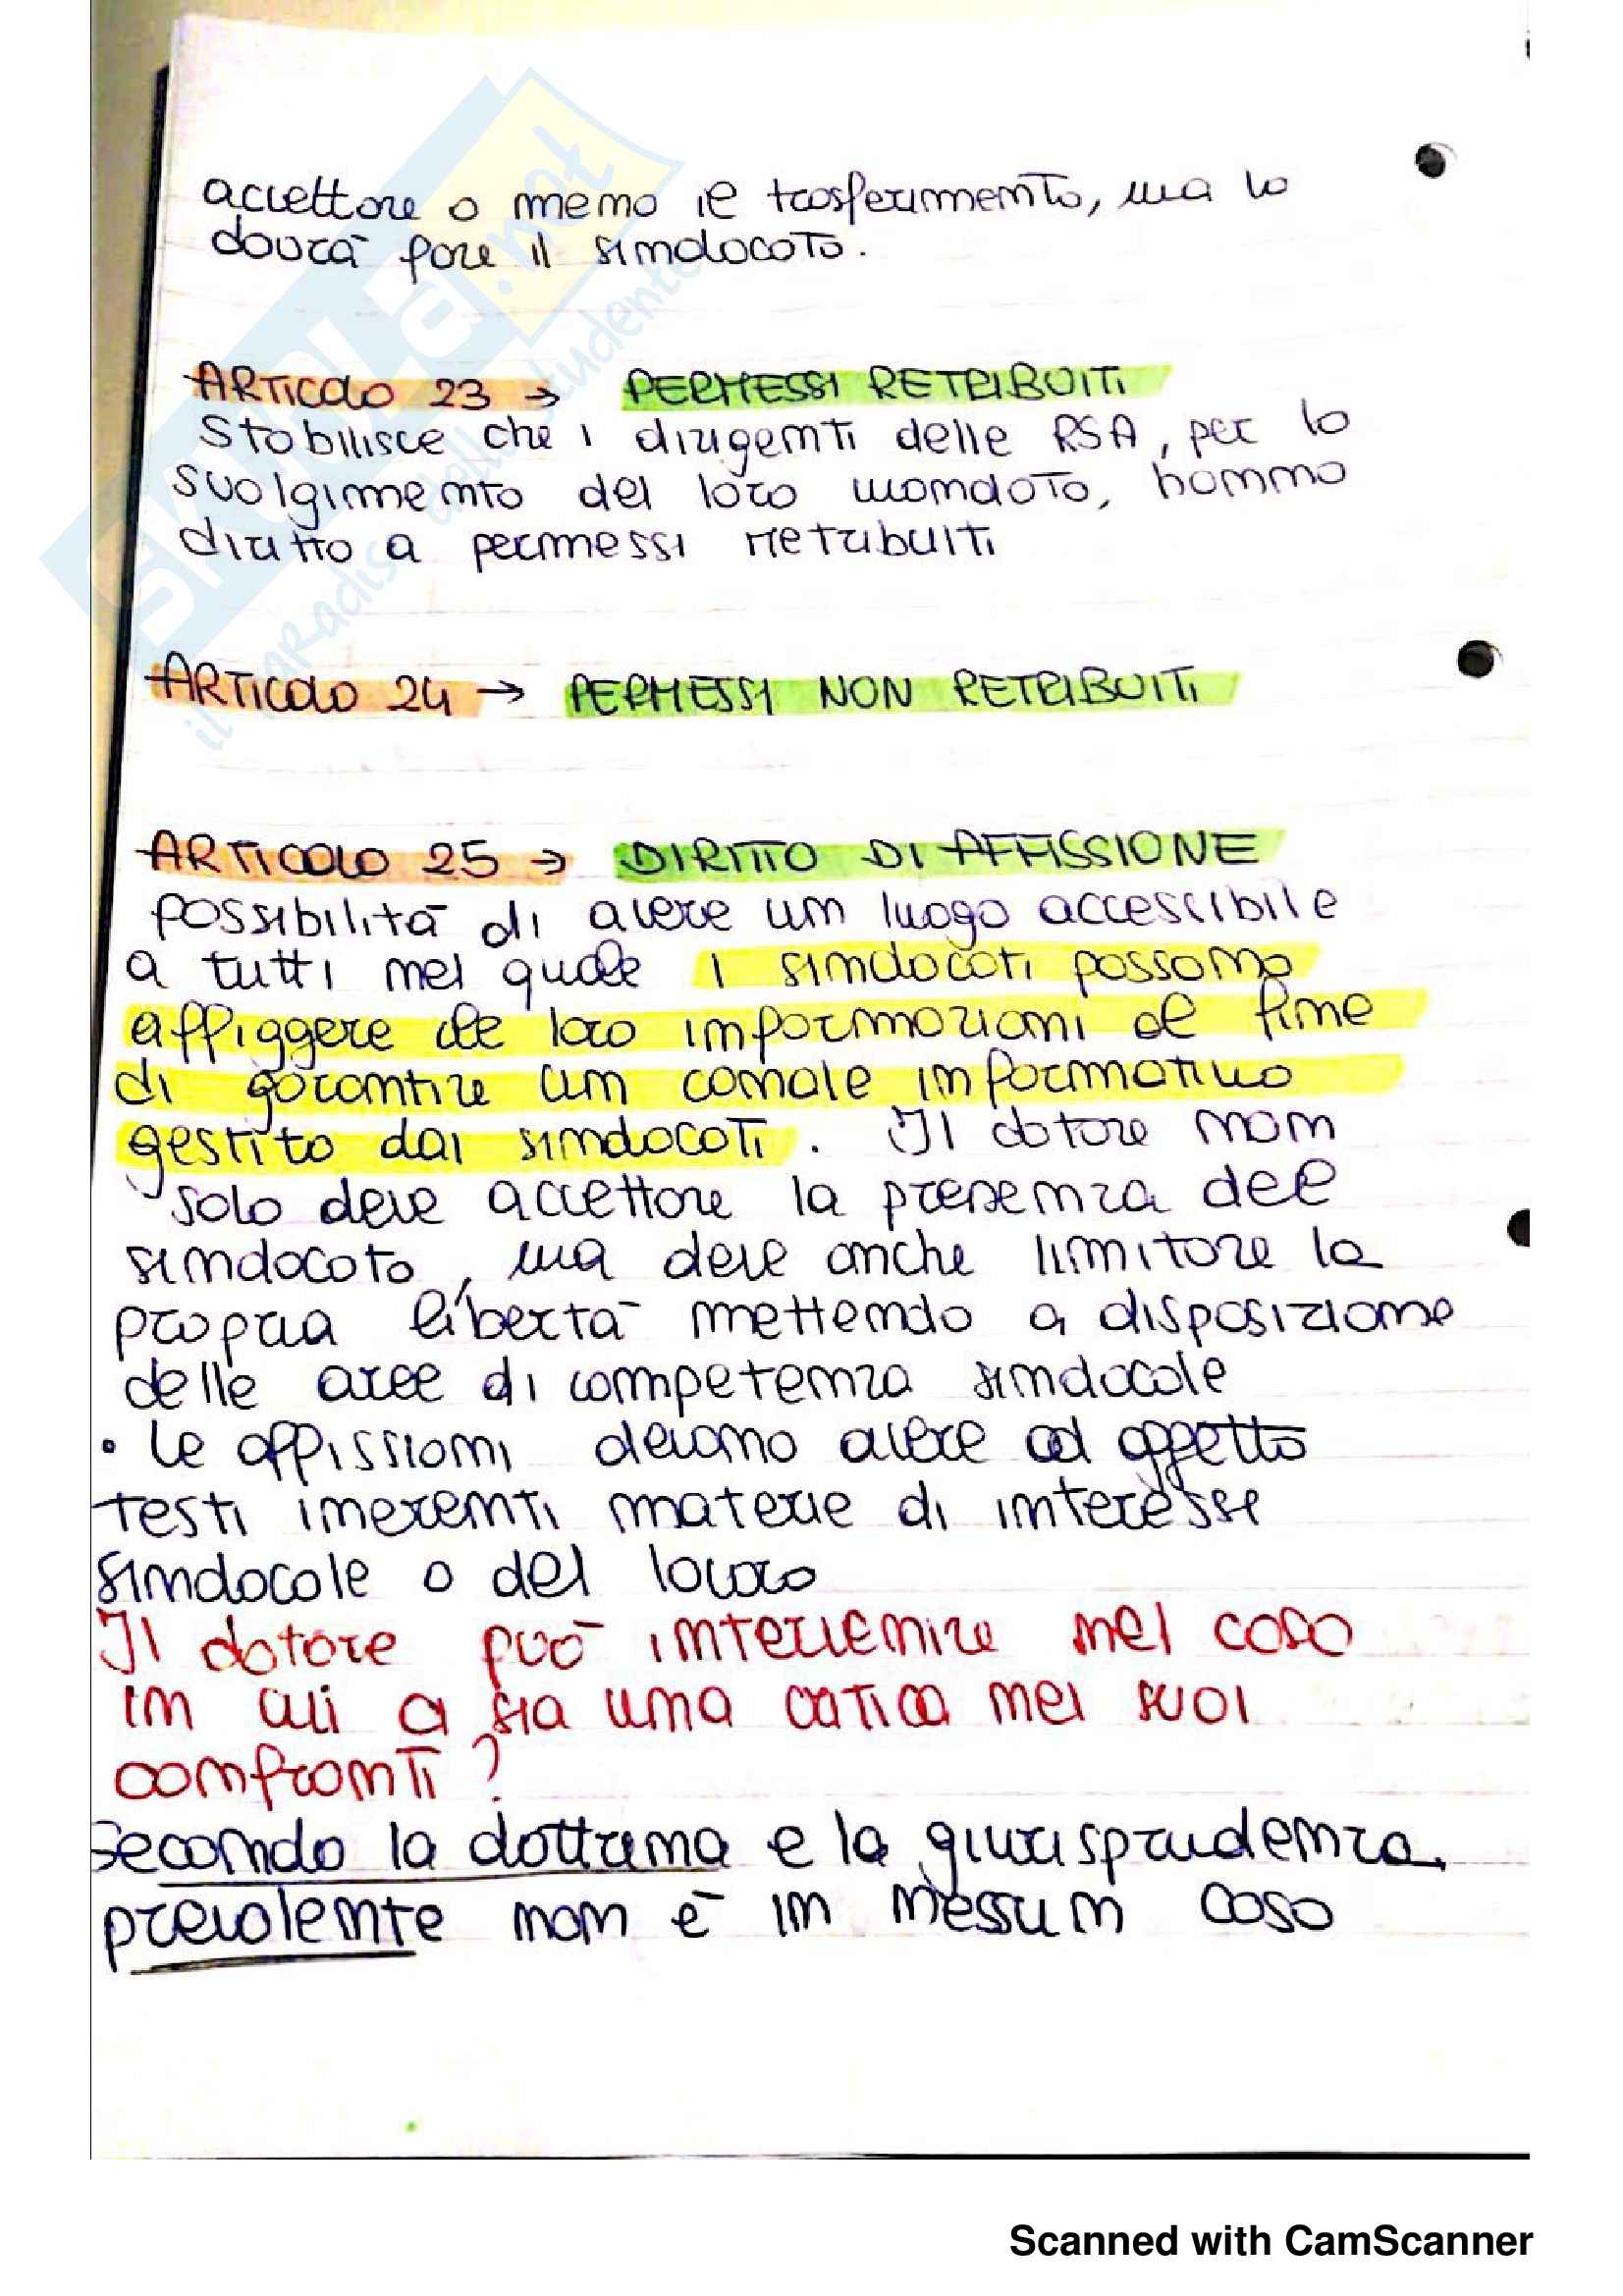 accettare o meno il trasferimento, ma lo
dovrà fare il sindacato.
ARTICOLO 23 → PERMESSI RETRIBUITI
Stabilisce che i dirigenti delle RSA, per lo
svolgimento del loro mandato, hanno
diritto a permessi retribuiti
ARTICOLO 24 → PERMESSI NON RETRIBUITI
ARTICOLO 25 → DIRITTO DI AFFISSIONE
possibilità di avere un luogo accessibile
a tutti nel quale i sindacati possono
affiggere le loro informazioni al fine
di garantire un canale informativo
gestito dai sindacati. Il datore non
solo deve accettare la presenza del
sindacato, ma deve anche limitare la
propria libertà mettendo a disposizione
delle aree di competenza sindacale
• Le affissioni devono avere ad oggetto
testi inerenti materie di interesse
sindacale o del lavoro
Il datore può intervenire nel caso
in cui ci sia una critica nei suoi
confronti?
Secondo la dottrina e la giurisprudenza
prevalente non è in nessun caso
SKUOLA.net
il paradiso dello studente
Scanned with CamScanner